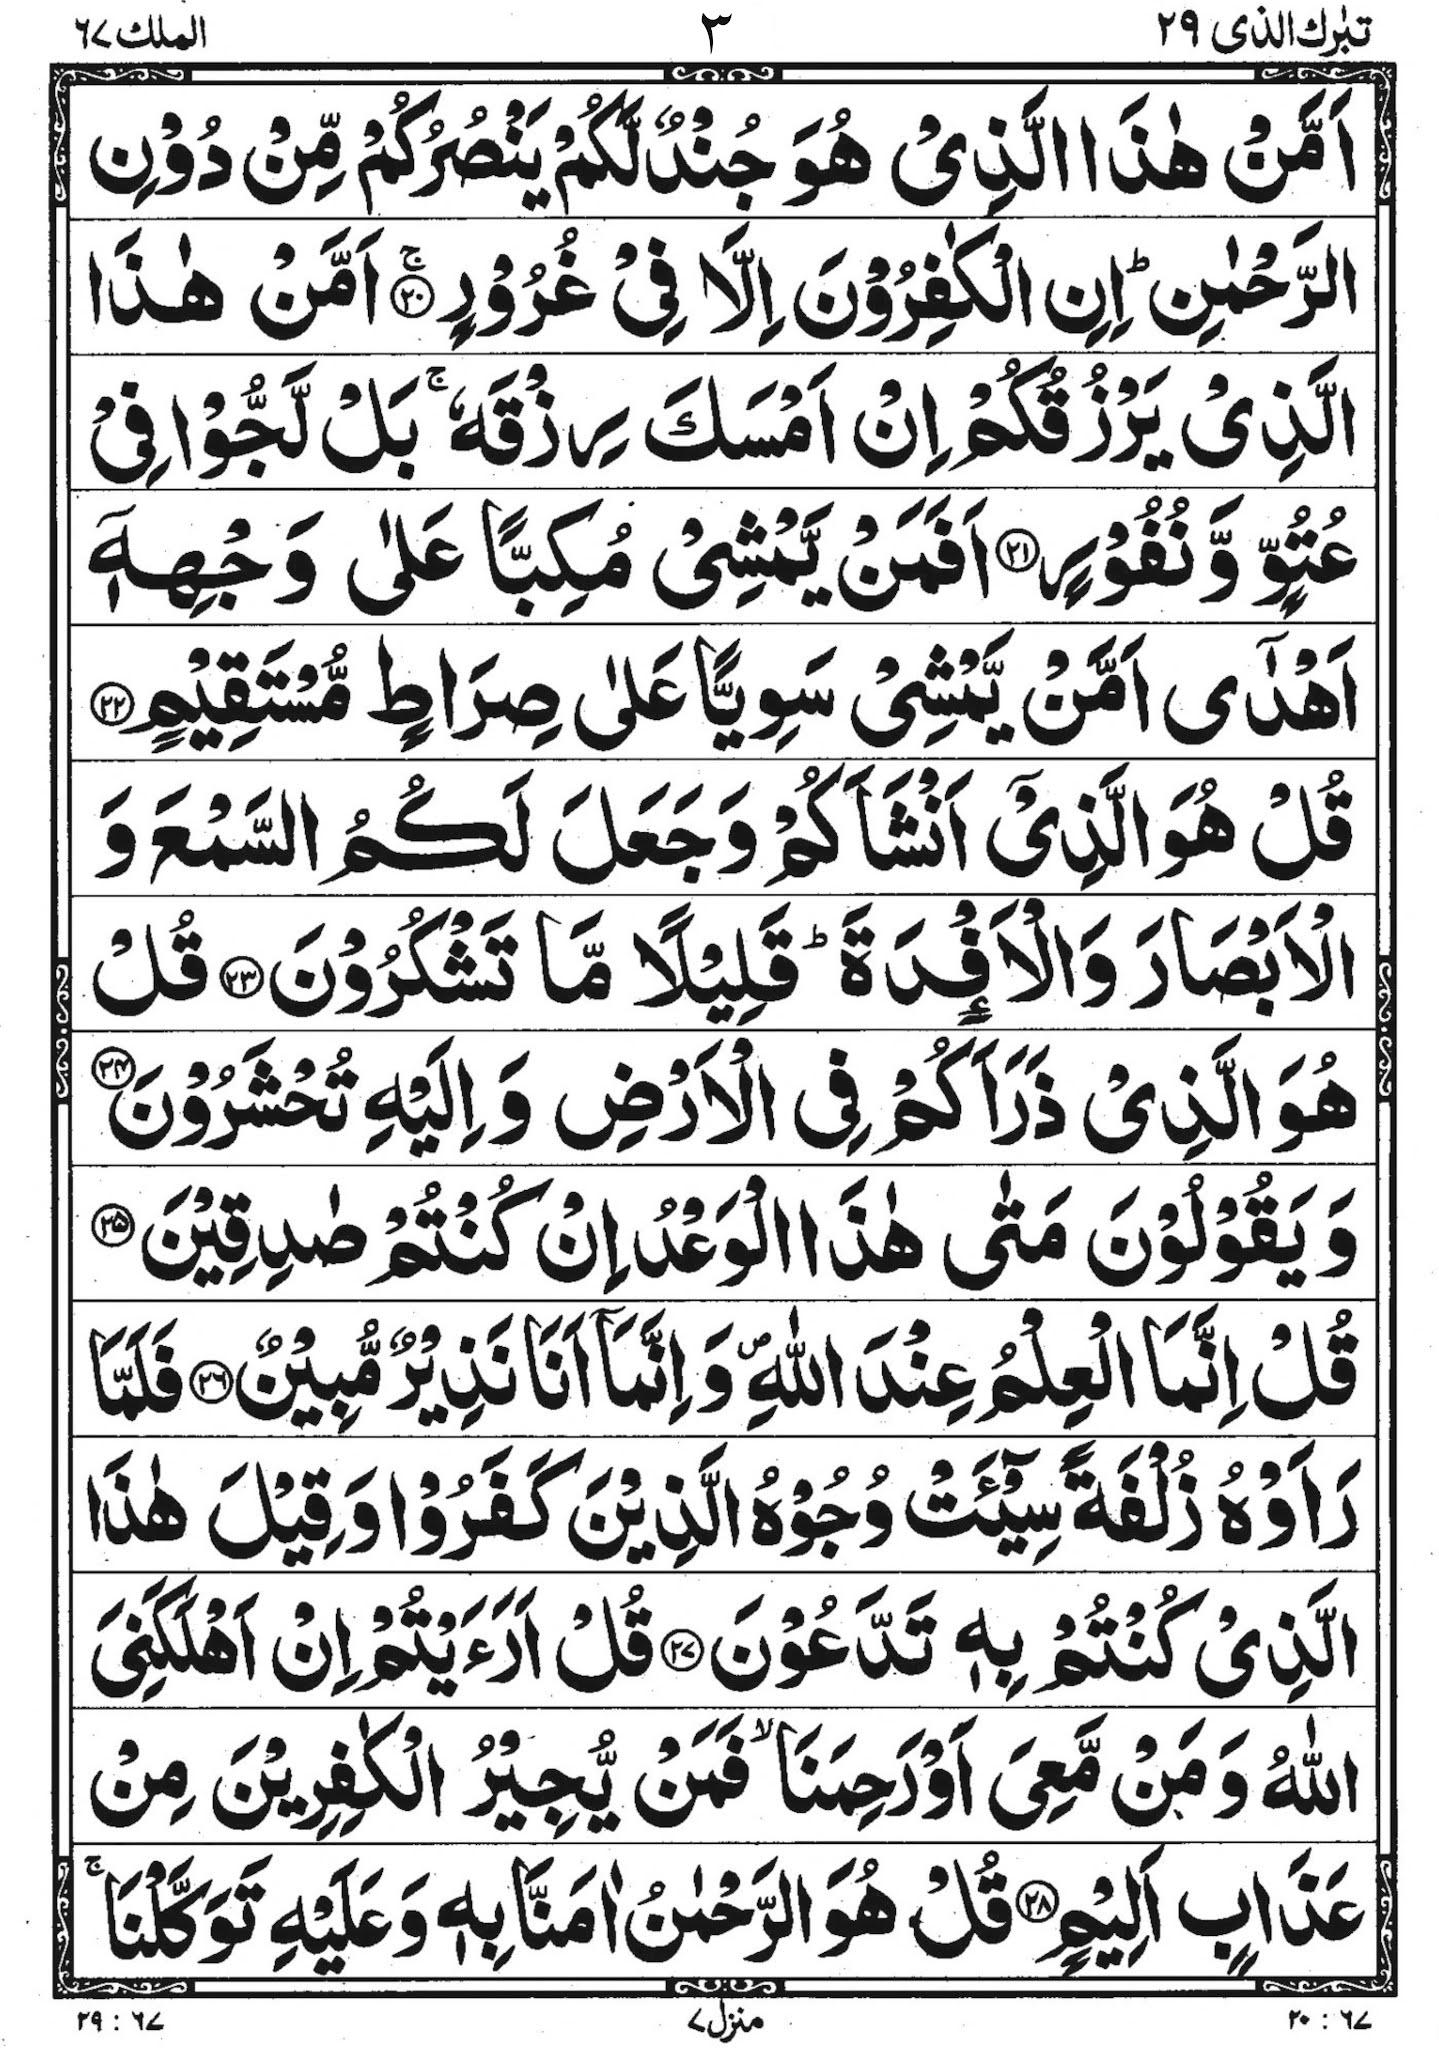 تبٰرك الذی ٢٩ ٣ الملك ٦٧
اَمَّنْ هٰذَا الَّذِیْ هُوَ جُنْدٌ لَّكُمْ یَنْصُرُكُمْ مِّنْ دُوْنِ
الرَّحْمٰنِ ؕ اِنِ الْكٰفِرُوْنَ اِلَّا فِیْ غُرُوْرٍ ۚ ﴿۲۰﴾ اَمَّنْ هٰذَا
الَّذِیْ یَرْزُقُكُمْ اِنْ اَمْسَكَ رِزْقَهٗ ۚ بَلْ لَّجُّوْا فِیْ
عُتُوٍّ وَّ نُفُوْرٍ ﴿۲۱﴾ اَفَمَنْ یَّمْشِیْ مُكِبًّا عَلٰی وَجْهِهٖۤ
اَهْدٰۤی اَمَّنْ یَّمْشِیْ سَوِیًّا عَلٰی صِرَاطٍ مُّسْتَقِیْمٍ ﴿۲۲﴾
قُلْ هُوَ الَّذِیْۤ اَنْشَاَكُمْ وَ جَعَلَ لَكُمُ السَّمْعَ وَ
الْاَبْصَارَ وَ الْاَفْـِٕدَةَ ؕ قَلِیْلًا مَّا تَشْكُرُوْنَ ﴿۲۳﴾ قُلْ
هُوَ الَّذِیْ ذَرَاَكُمْ فِی الْاَرْضِ وَ اِلَیْهِ تُحْشَرُوْنَ ﴿۲۴﴾
وَ یَقُوْلُوْنَ مَتٰی هٰذَا الْوَعْدُ اِنْ كُنْتُمْ صٰدِقِیْنَ ﴿۲۵﴾
قُلْ اِنَّمَا الْعِلْمُ عِنْدَ اللّٰهِ ۪ وَ اِنَّمَاۤ اَنَا نَذِیْرٌ مُّبِیْنٌ ﴿۲۶﴾ فَلَمَّا
رَاَوْهُ زُلْفَةً سِیْٓـَٔتْ وُجُوْهُ الَّذِیْنَ كَفَرُوْا وَ قِیْلَ هٰذَا
الَّذِیْ كُنْتُمْ بِهٖ تَدَّعُوْنَ ﴿۲۷﴾ قُلْ اَرَءَیْتُمْ اِنْ اَهْلَكَنِیَ
اللّٰهُ وَ مَنْ مَّعِیَ اَوْ رَحِمَنَا ۙ فَمَنْ یُّجِیْرُ الْكٰفِرِیْنَ مِنْ
عَذَابٍ اَلِیْمٍ ﴿۲۸﴾ قُلْ هُوَ الرَّحْمٰنُ اٰمَنَّا بِهٖ وَ عَلَیْهِ تَوَكَّلْنَا ۚ
٦٧ : ٢٠ منزل ٧ ٦٧ : ٢٩